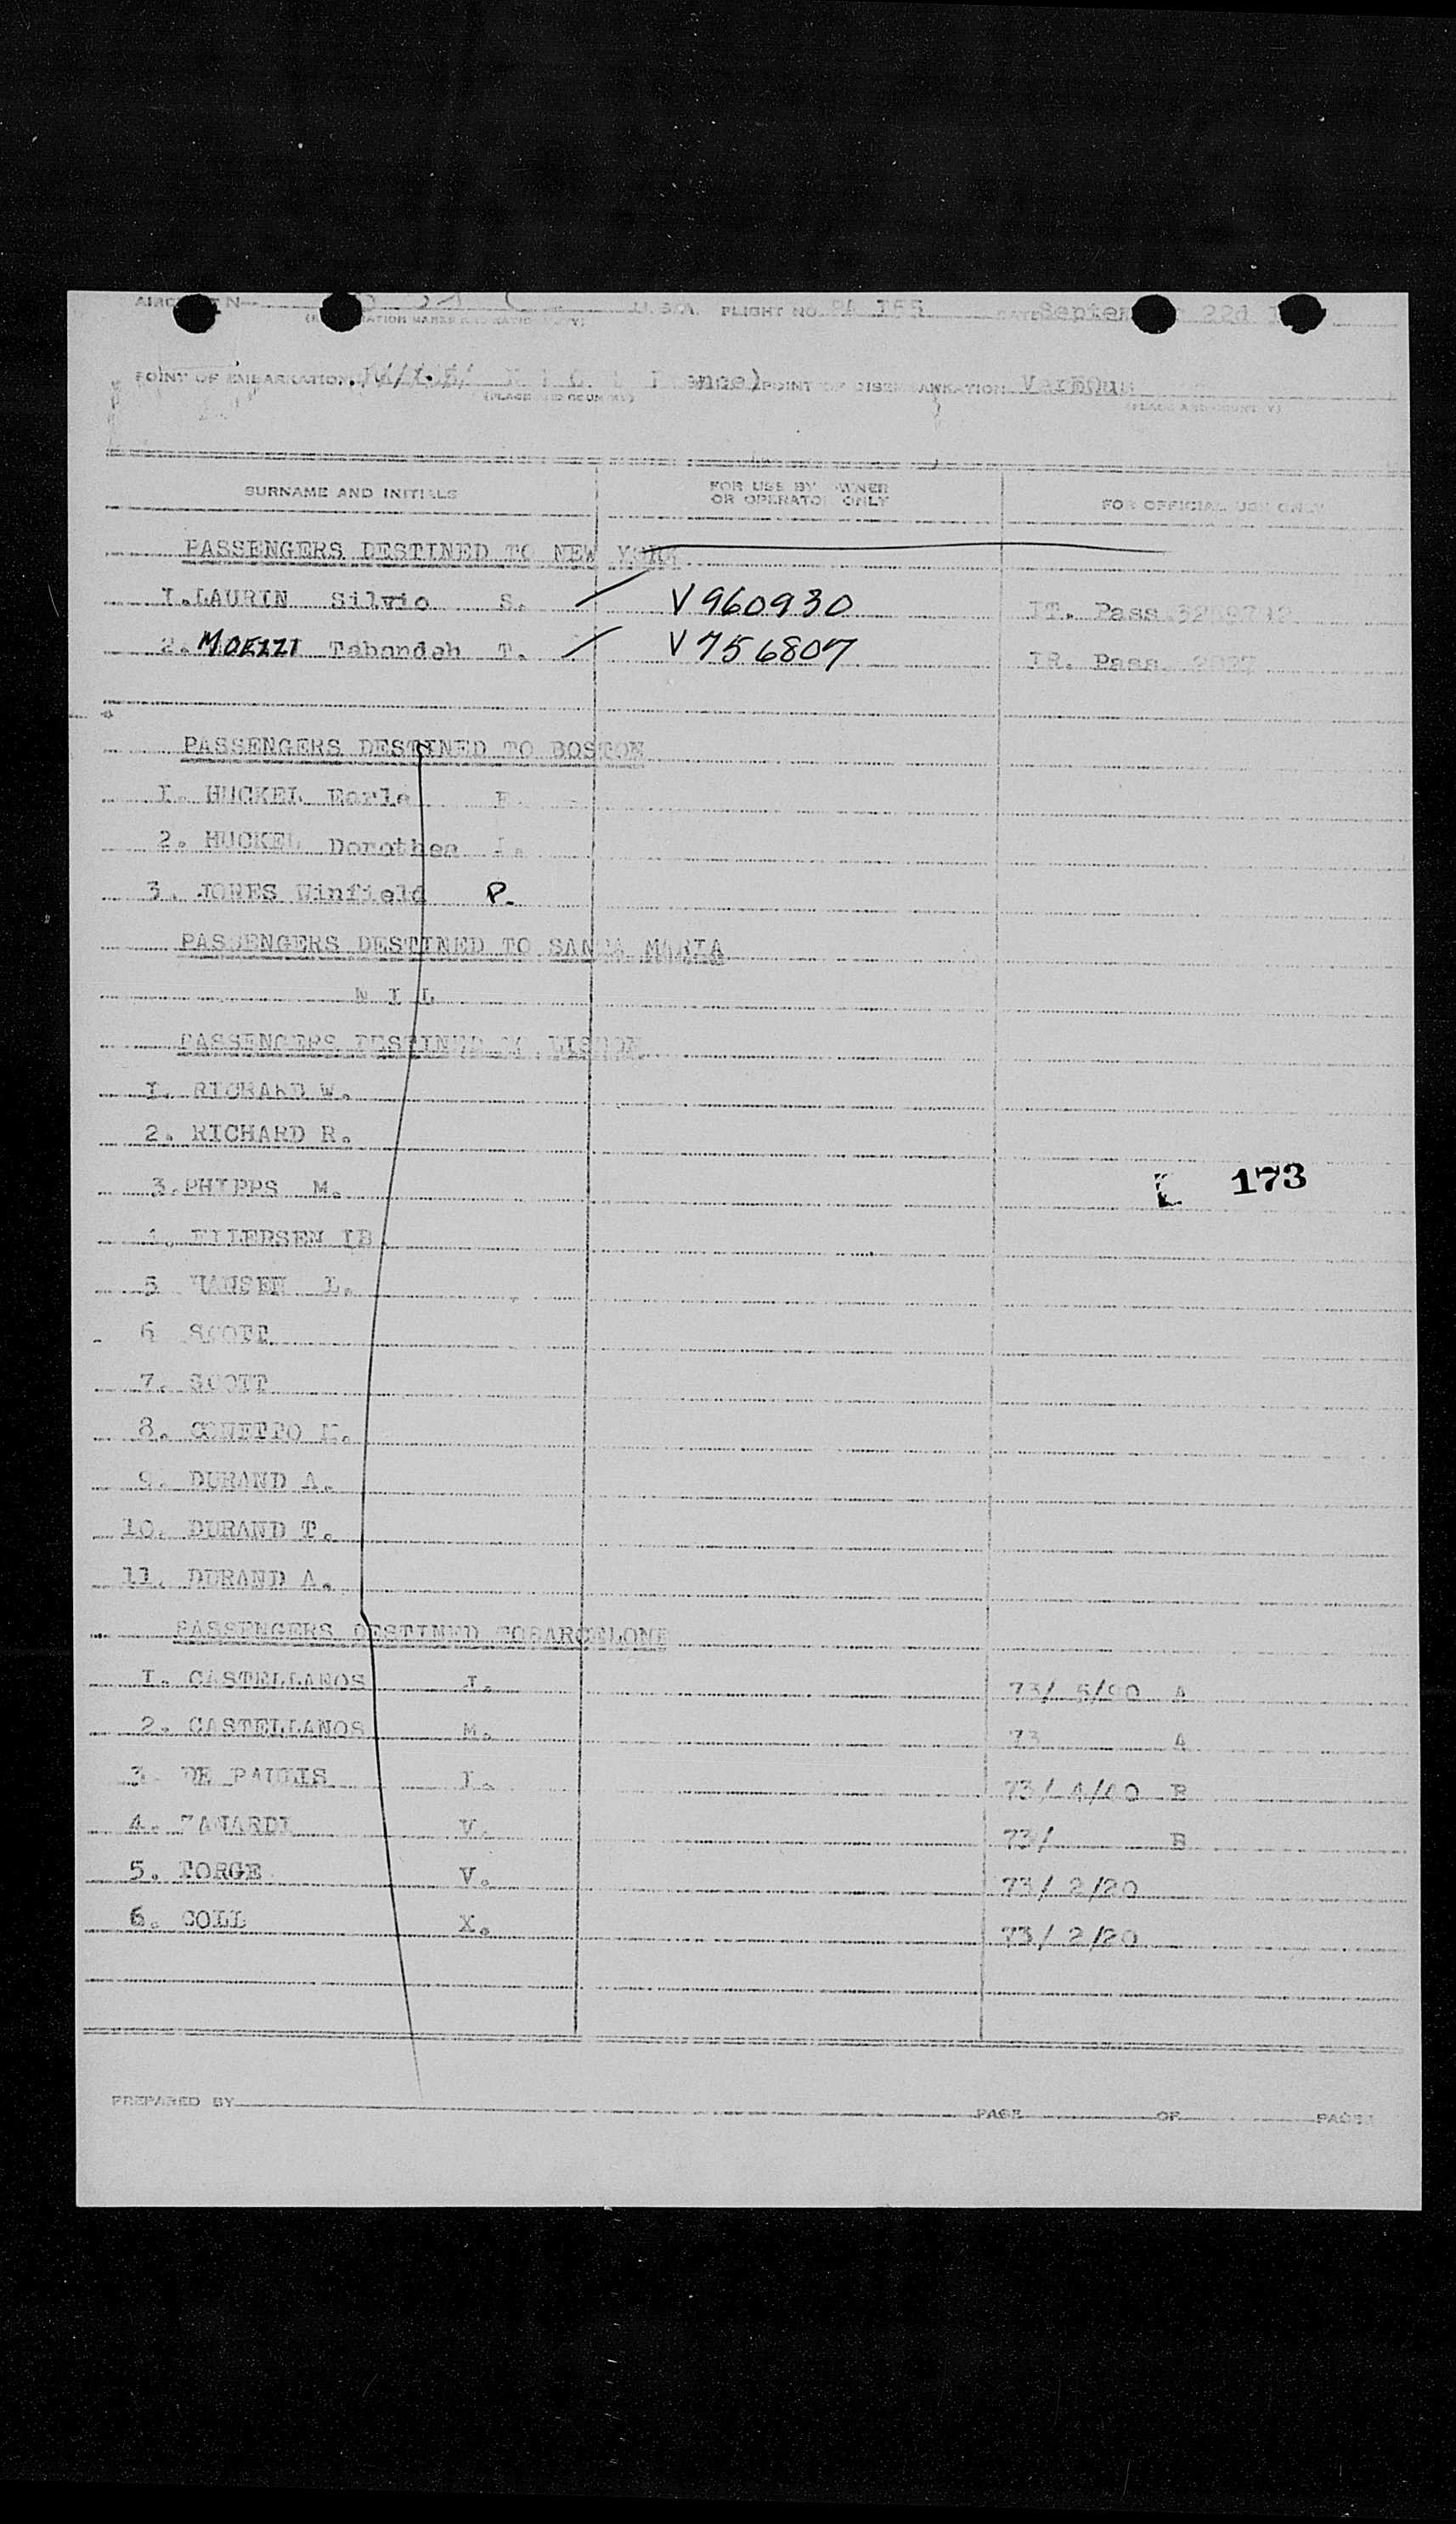 U.S.A. FLIGHT NO. PA 155
POINT OF EMBARKATION POINT OF DISEMBARKATION Various
(PLACE AND COUNTRY) (PLACE AND COUNTRY)
SURNAME AND INITIALS FOR USE BY OWNER OR OPERATOR ONLY FOR OFFICIAL USE ONLY
PASSENGERS DESTINED TO NEW YORK
I. LAURIN Silvio S. V960930 IT. Pass
2. MOEZZI Tabandeh T. V756807 IR. Pass
PASSENGERS DESTINED TO BOSTON
I. HUCKEL Earle
2. HUCKEL Dorothea
3. JONES Winfield P.
PASSENGERS DESTINED TO SANTA MARIA
N I L
PASSENGERS DESTINED TO LISBON
I. RICHARD W.
2. RICHARD R.
3. PHIPPS M.
173
4. EILERSEN IB
5 HANSEN L.
6 SCOTT
7. SCOTT
8. M.
9. DURAND A.
10. DURAND T.
11. DURAND A.
PASSENGERS DESTINED TO BARCELONE
I. CASTELLANOS J. 73/ 5/90 A
2. CASTELLANOS M. 73 A
3 DE PAULIS I. 73/ 4/40 B
4. ZANARDI V. 73/ B
5. TORGE V. 73/ 2/20
6. COLL X. 73/ 2/20
PREPARED BY PAGE OF PAGES